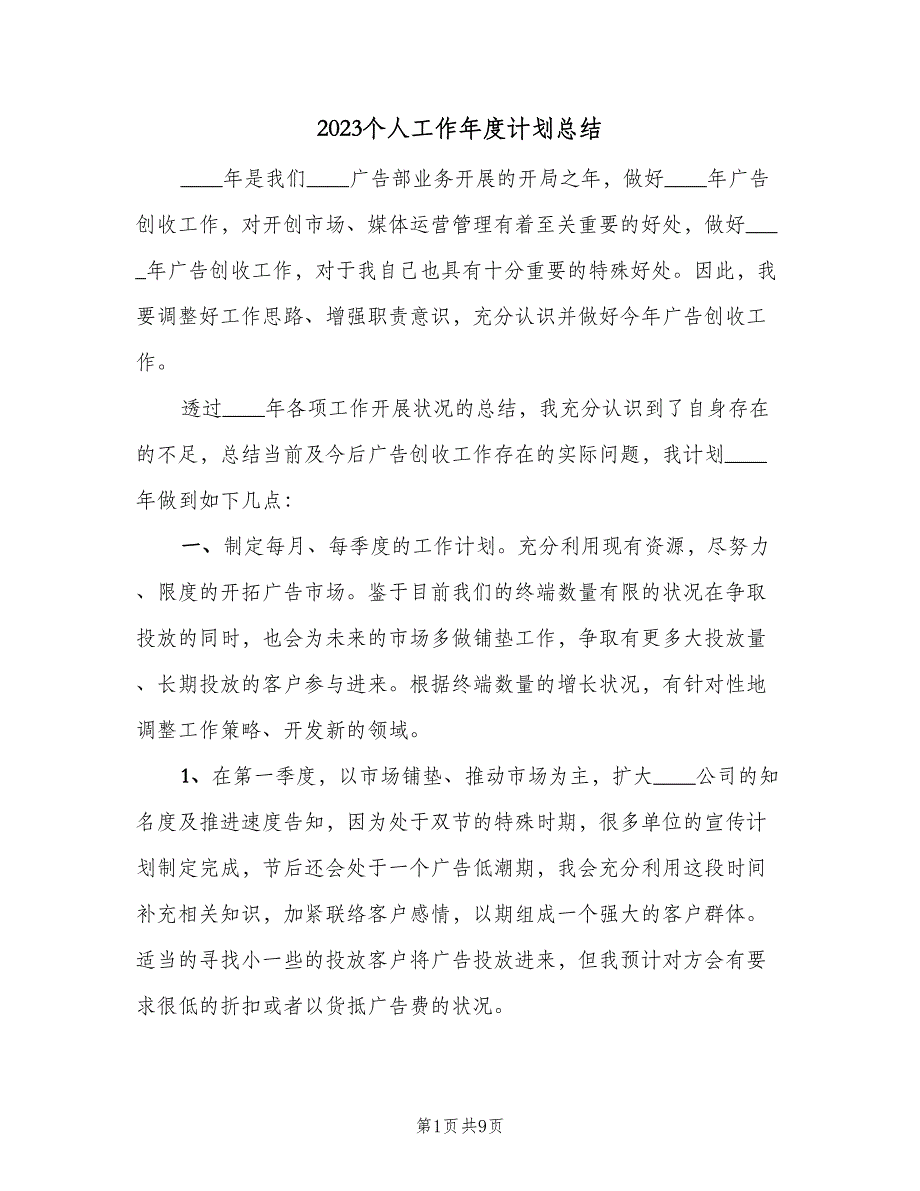 2023个人工作年度计划总结
____年是我们____广告部业务开展的开局之年，做好____年广告
创收工作，对开创市场、媒体运营管理有着至关重要的好处，做好___
_年广告创收工作，对于我自己也具有十分重要的特殊好处。因此，我
要调整好工作思路、增强职责意识，充分认识并做好今年广告创收工
作。
透过____年各项工作开展状况的总结，我充分认识到了自身存在
的不足，总结当前及今后广告创收工作存在的实际问题，我计划____
年做到如下几点：
一、制定每月、每季度的工作计划。充分利用现有资源，尽努力
、限度的开拓广告市场。鉴于目前我们的终端数量有限的状况在争取
投放的同时，也会为未来的市场多做铺垫工作，争取有更多大投放量
、长期投放的客户参与进来。根据终端数量的增长状况，有针对性地
调整工作策略、开发新的领域。
1、在第一季度，以市场铺垫、推动市场为主，扩大____公司的知
名度及推进速度告知，因为处于双节的特殊时期，很多单位的宣传计
划制定完成，节后还会处于一个广告低潮期，我会充分利用这段时间
补充相关知识，加紧联络客户感情，以期组成一个强大的客户群体。
适当的寻找小一些的投放客户将广告投放进来，但我预计对方会有要
求很低的折扣或者以货抵广告费的状况。
第1页 共9页